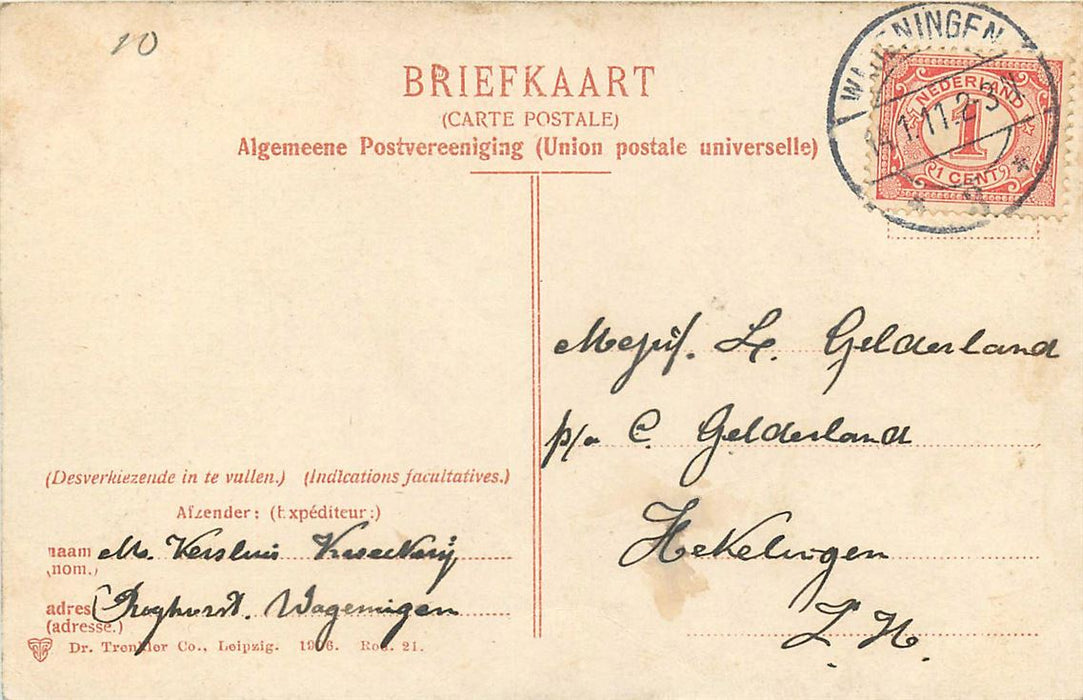 10
BRIEFKAART
(CARTE POSTALE)
Algemeene Postvereeniging (Union postale universelle)
WAGENINGEN
14.1.11.2-3
NEDERLAND
1
1 CENT
Mejuf. L. Gelderland
p/a C. Gelderland
Hekelingen
Z. H.
(Desverkiezende in te vullen.) (Indications facultatives.)
Afzender: (Expéditeur:)
naam M. Versluis Kweekerij
(nom.)
adres Roghorst. Wageningen
(adresse.)
Dr. Trenkler Co., Leipzig. 1906. Rod. 21.